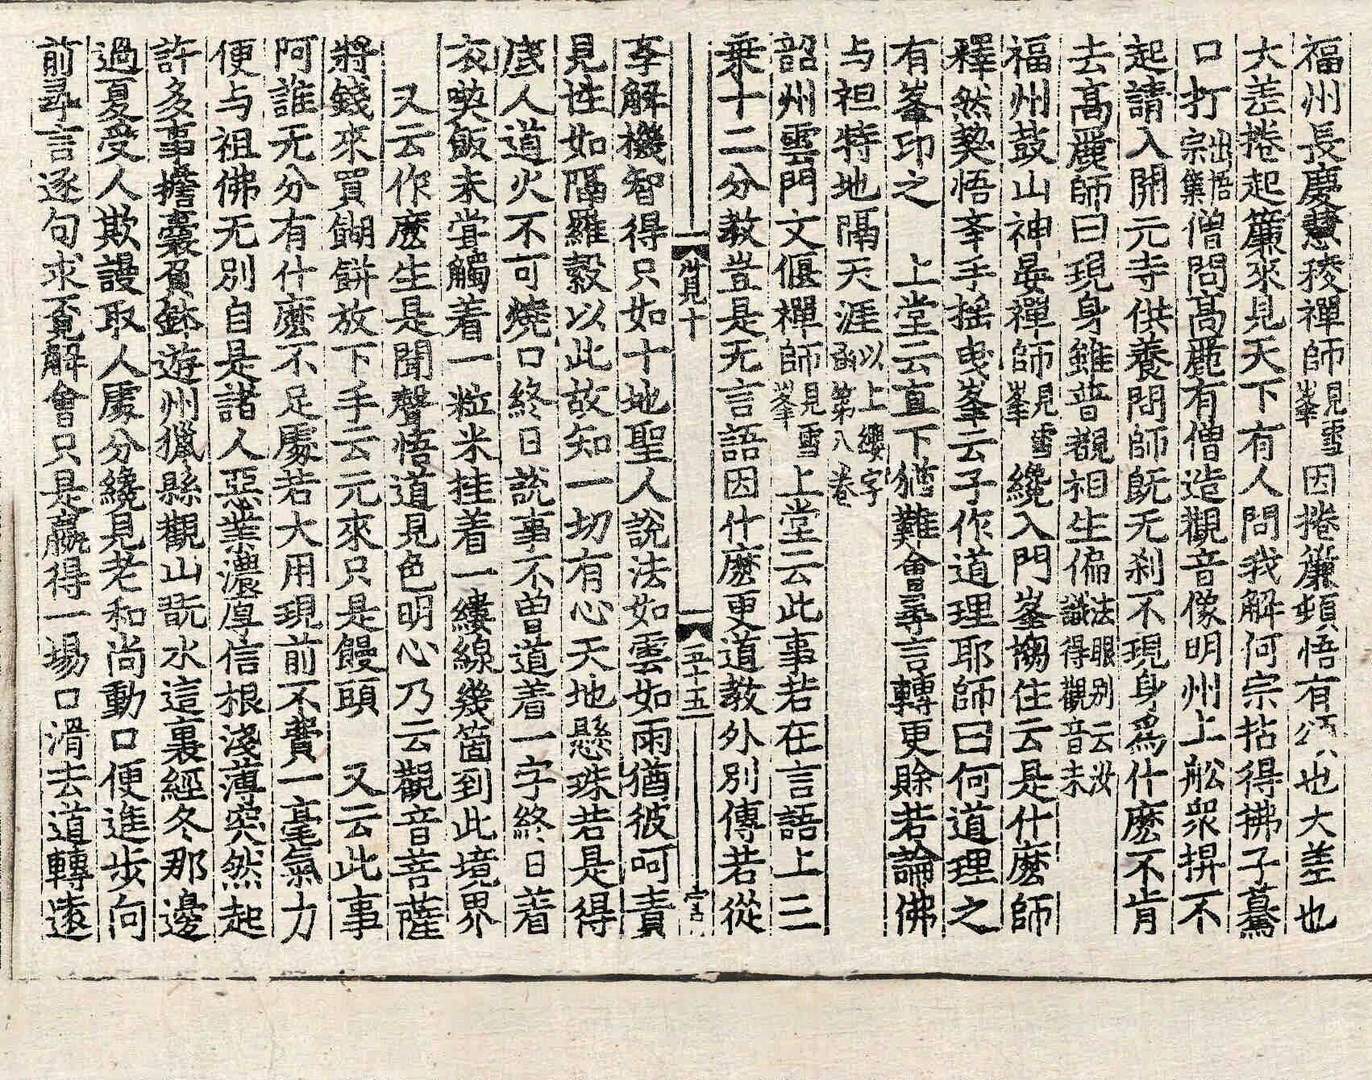 福州長慶慧稜禪師見雪峯因捲簾頓悟有頌也大差也
大差捲起簾來見天下有人問我解何宗拈得拂子驀
口打出悟宗集僧問高麗有僧造觀音像明州上舩衆捍不
起請入開元寺供養問師旣无刹不現身爲什麽不肯
去高麗師曰現身雖普覩相生偏法眼別云汝識得觀音未
福州鼓山神晏禪師見雪峯纔入門峯搊住云是什麽師
釋然契悟㪯手搖曳峯云子作道理耶師曰何道理之
有峯印之 上堂云直下猶難會尋言轉更賖若論佛
与祖特地隔天涯以上纓字函第八卷
韶州雲門文偃禪師見雪峯上堂云此事若在言語上三
乗十二分教豈是无言語因什麽更道教外別傳若從
斈解機智得只如十地聖人說法如雲如雨猶彼呵責
見性如隔羅縠以此故知一切有心天地懸殊若是得
底人道火不可燒口終日說事不曽道着一字終日着
衣喫飯未甞觸着一粒米挂着一縷線幾箇到此境界
又云作麽生是聞聲悟道見色明心乃云觀音菩薩
將錢來買餬餅放下手云元來只是饅頭 又云此事
阿誰无分有什麽不足處若大用現前不費一毫氣力
便与祖佛无別自是諸人惡業濃厚信根淺薄突然起
許多事擔囊負鉢遊州獵縣觀山翫水這裏經冬那邊
過夏受人欺謾取人處分纔見老和尚動口便進步向
前尋言逐句求覔解會只是贏得一場口滑去道轉遠